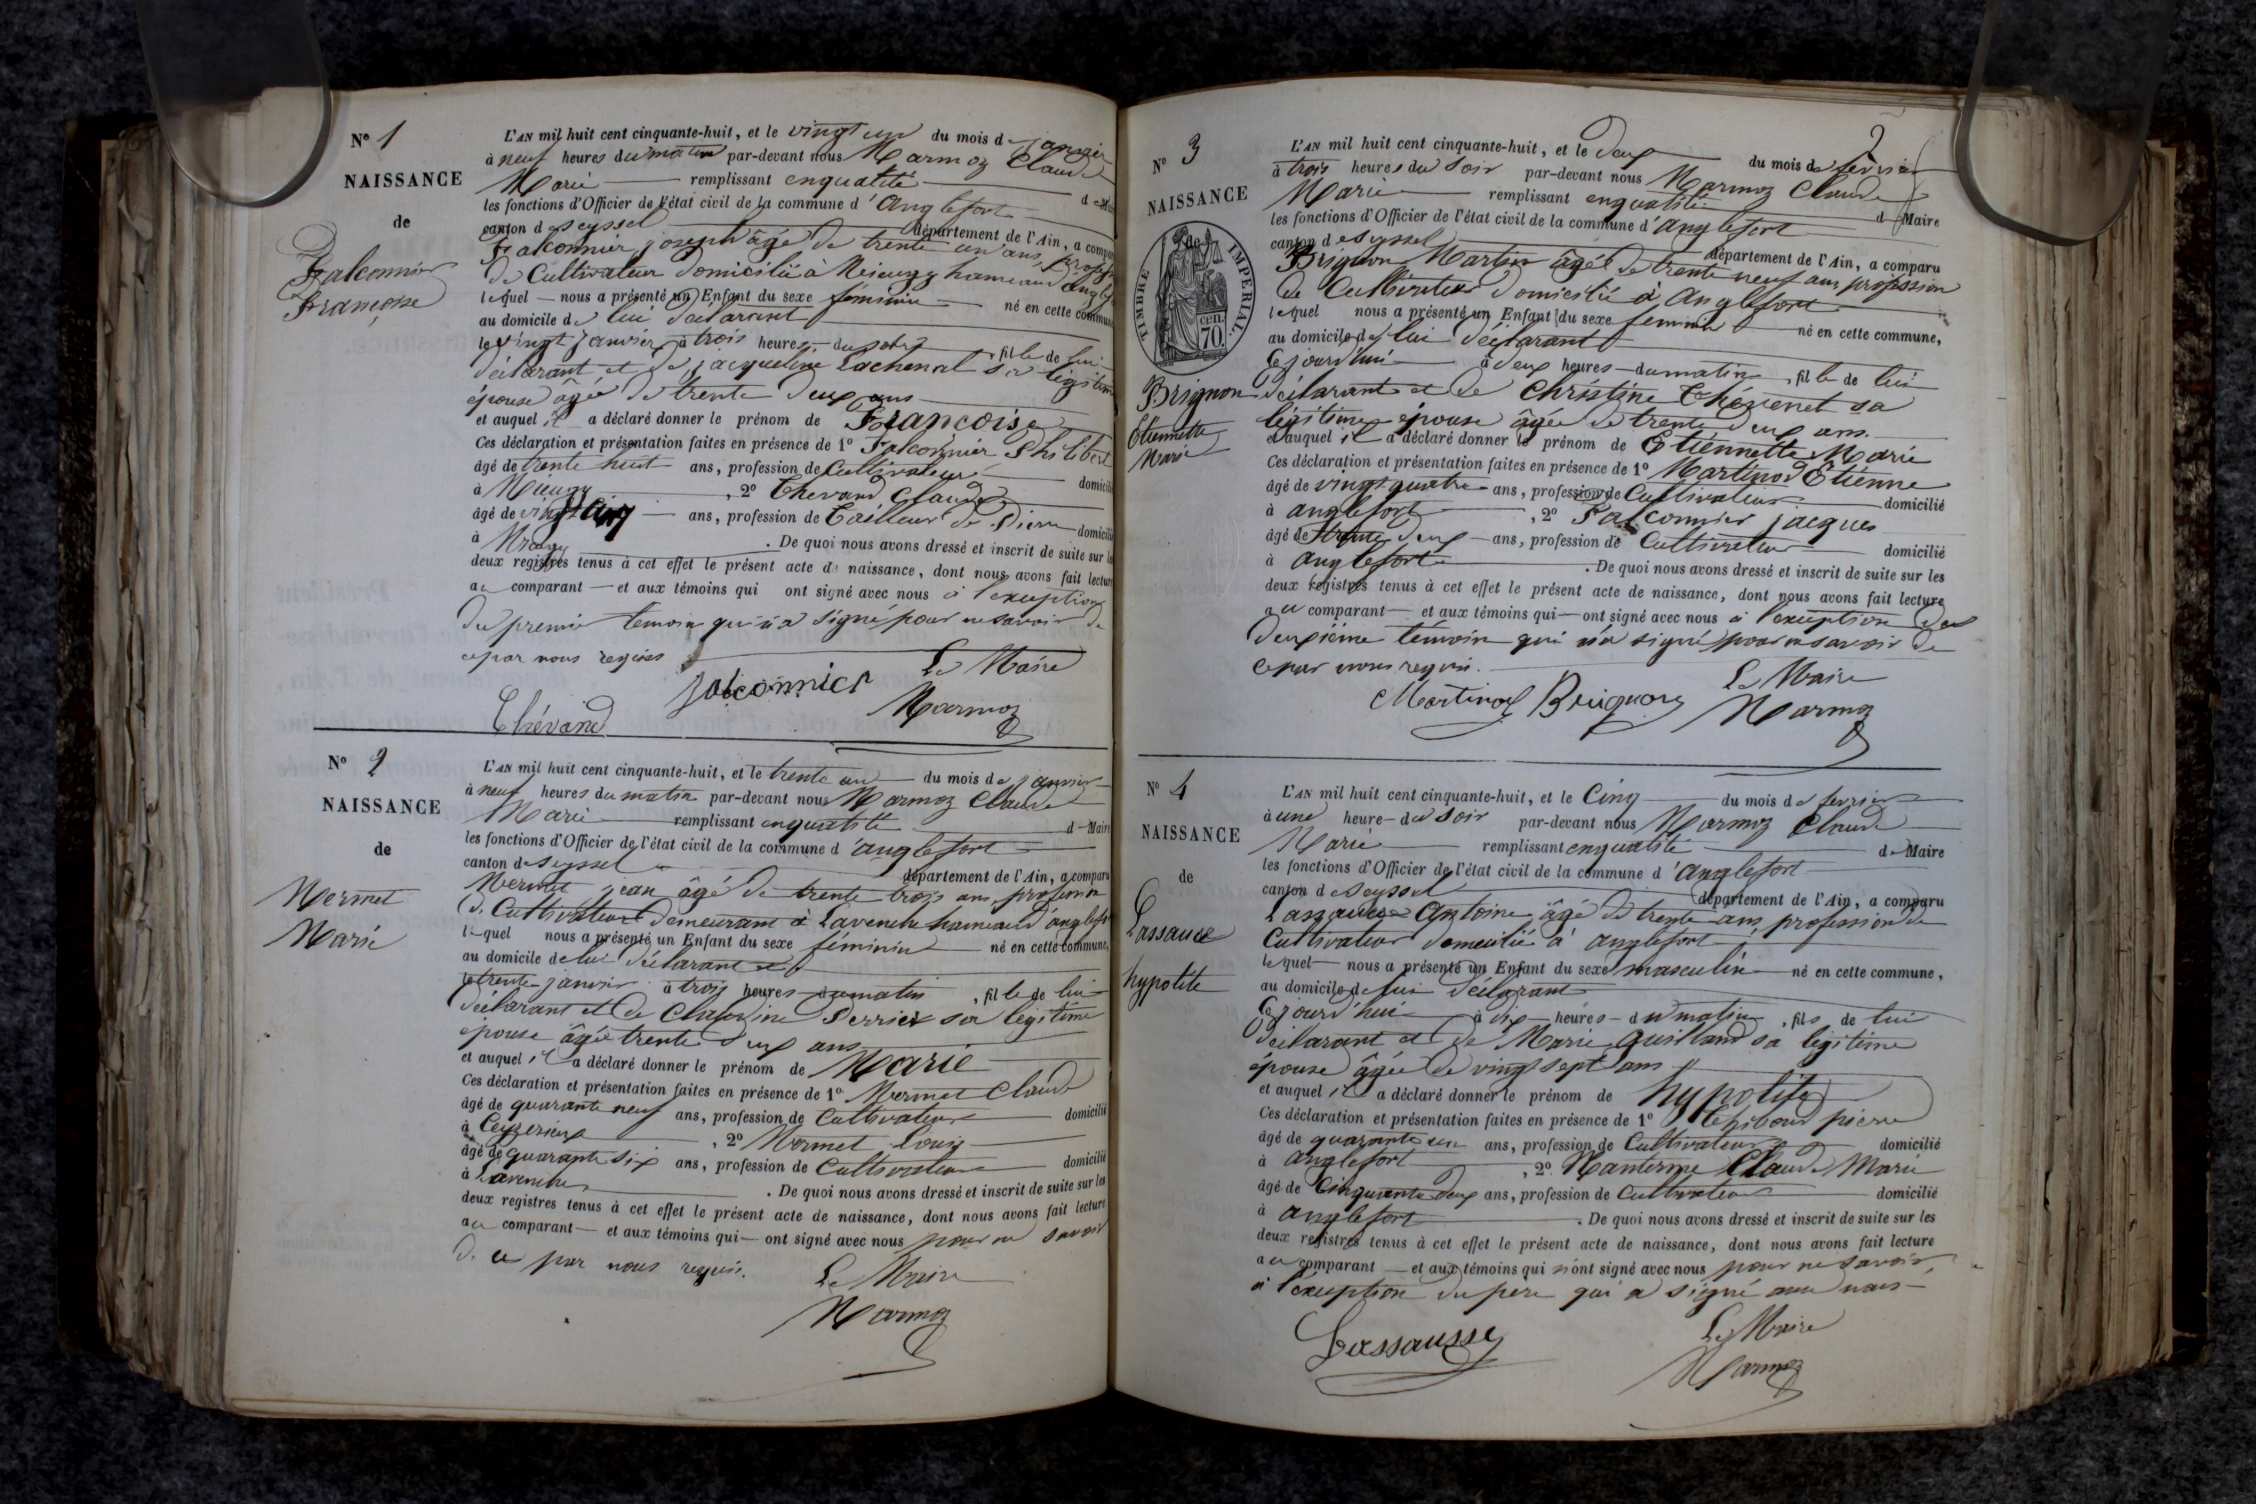 N° 1
NAISSANCE
de
Falconnier
Françoise
L'AN mil huit cent cinquante-huit, et le vingt un du mois de janvier
à neuf heures du matin par-devant nous Marmoz Claude
Marie remplissant en qualité de Maire
les fonctions d'Officier de l'état civil de la commune d'Anglefort
canton de Seyssel département de l'Ain, a comparu
Falconnier joseph âgé de trente un ans, profession
de Cultivateur domicilié à hameau d'
lequel — nous a présenté un Enfant du sexe féminin né en cette commune
au domicile de lui déclarant
le vingt janvier à trois heures du soir, fille de lui
déclarant et de jacqueline Lachenal sa légitime
épouse âgée de trente deux ans
et auquel il a déclaré donner le prénom de Françoise
Ces déclaration et présentation faites en présence de 1° Falconnier Philibert
âgé de trente huit ans, profession de Cultivateur domicilié
à , 2° Thevand Claude
âgé de vingt cinq ans, profession de Tailleur de Pierre domicilié
à . De quoi nous avons dressé et inscrit de suite sur les
deux registres tenus à cet effet le présent acte de naissance, dont nous avons fait lecture
au comparant — et aux témoins qui ont signé avec nous à l'exception
du premier temoin qui n'a signé pour ne savoir de
ce par nous requis
Falconnier
Le Maire
Thévand
Marmoz
N° 2
NAISSANCE
de
Mermet
Marie
L'AN mil huit cent cinquante-huit, et le trente un du mois de janvier
à neuf heures du matin par-devant nous Marmoz Claude
Marie remplissant en qualité de Maire
les fonctions d'Officier de l'état civil de la commune d'anglefort
canton de Seyssel département de l'Ain, a comparu
Mermet jean âgé de trente trois ans profession
de Cultivateur demeurant à Lavenche hameau d'anglefort
lequel nous a présenté un Enfant du sexe féminin né en cette commune,
au domicile de lui déclarant
le trente janvier à trois heures du matin, fille de lui
déclarant et de Claudine Perrier sa légitime
épouse âgée trente deux ans
et auquel il a déclaré donner le prénom de Marie
Ces déclaration et présentation faites en présence de 1° Mermet Claude
âgé de quarante neuf ans, profession de Cultivateur domicilié
à Ceyzerieux, 2° Mermet Louis
âgé de quarante six ans, profession de Cultivateur domicilié
à Lavenche. De quoi nous avons dressé et inscrit de suite sur les
deux registres tenus à cet effet le présent acte de naissance, dont nous avons fait lecture
au comparant — et aux témoins qui — ont signé avec nous pour ne savoir
de ce par nous requis.
Le Maire
Marmoz
2
N° 3
NAISSANCE
de
TIMBRE IMPERIAL.
70. cen.
Brignon
Etiennette
Marie
L'AN mil huit cent cinquante-huit, et le deux du mois de février
à trois heures du soir par-devant nous Marmoz Claude
Marie remplissant en qualité de Maire
les fonctions d'Officier de l'état civil de la commune d'anglefort
canton de Seyssel département de l'Ain, a comparu
Brignon Martin âgé de trente neuf ans, profession
de Cultivateur domicilié à Anglefort
lequel nous a présenté un Enfant du sexe féminin né en cette commune,
au domicile de lui déclarant
Cejourd'hui à deux heures — du matin, fille de lui
déclarant et de Christine Thévenet sa
légitime épouse âgée de trente deux ans.
et auquel il a déclaré donner le prénom de Etiennette Marie
Ces déclaration et présentation faites en présence de 1° Martinod Etienne
âgé de vingt quatre ans, profession de Cultivateur domicilié
à anglefort, 2° Falconnier jacques
âgé de trente deux ans, profession de Cultivateur domicilié
à anglefort. De quoi nous avons dressé et inscrit de suite sur les
deux registres tenus à cet effet le présent acte de naissance, dont nous avons fait lecture
au comparant — et aux témoins qui — ont signé avec nous à l'exception du
deuxième témoin qui n'a signé pour ne savoir de
ce par nous requis.
Martinod Brignon
Le Maire
Marmoz
N° 4
NAISSANCE
de
Lassauce
hypolite
L'AN mil huit cent cinquante-huit, et le Cinq du mois de février
à une heure — du soir par-devant nous Marmoz Claude
Marie remplissant en qualité de Maire
les fonctions d'Officier de l'état civil de la commune d'anglefort
canton de Seyssel département de l'Ain, a comparu
Lassauce Antoine âgé de trente ans, profession de
Cultivateur domicilié à anglefort
lequel — nous a présenté un Enfant du sexe masculin né en cette commune,
au domicile de lui déclarant
Cejourd'hui à dix heures — du matin, fils de lui
déclarant et de Marie Guilland sa légitime
épouse âgée de vingt sept ans
et auquel il a déclaré donner le prénom de hypolite
Ces déclaration et présentation faites en présence de 1° Thiboud pierre
âgé de quarante un ans, profession de Cultivateur domicilié
à anglefort, 2° Claude Marie
âgé de Cinquante deux ans, profession de Cultivateur domicilié
à anglefort. De quoi nous avons dressé et inscrit de suite sur les
deux registres tenus à cet effet le présent acte de naissance, dont nous avons fait lecture
au comparant — et aux témoins qui n'ont signé avec nous pour ne savoir,
à l'exception du père qui a signé avec nous
Lassausse
Le Maire
Marmoz